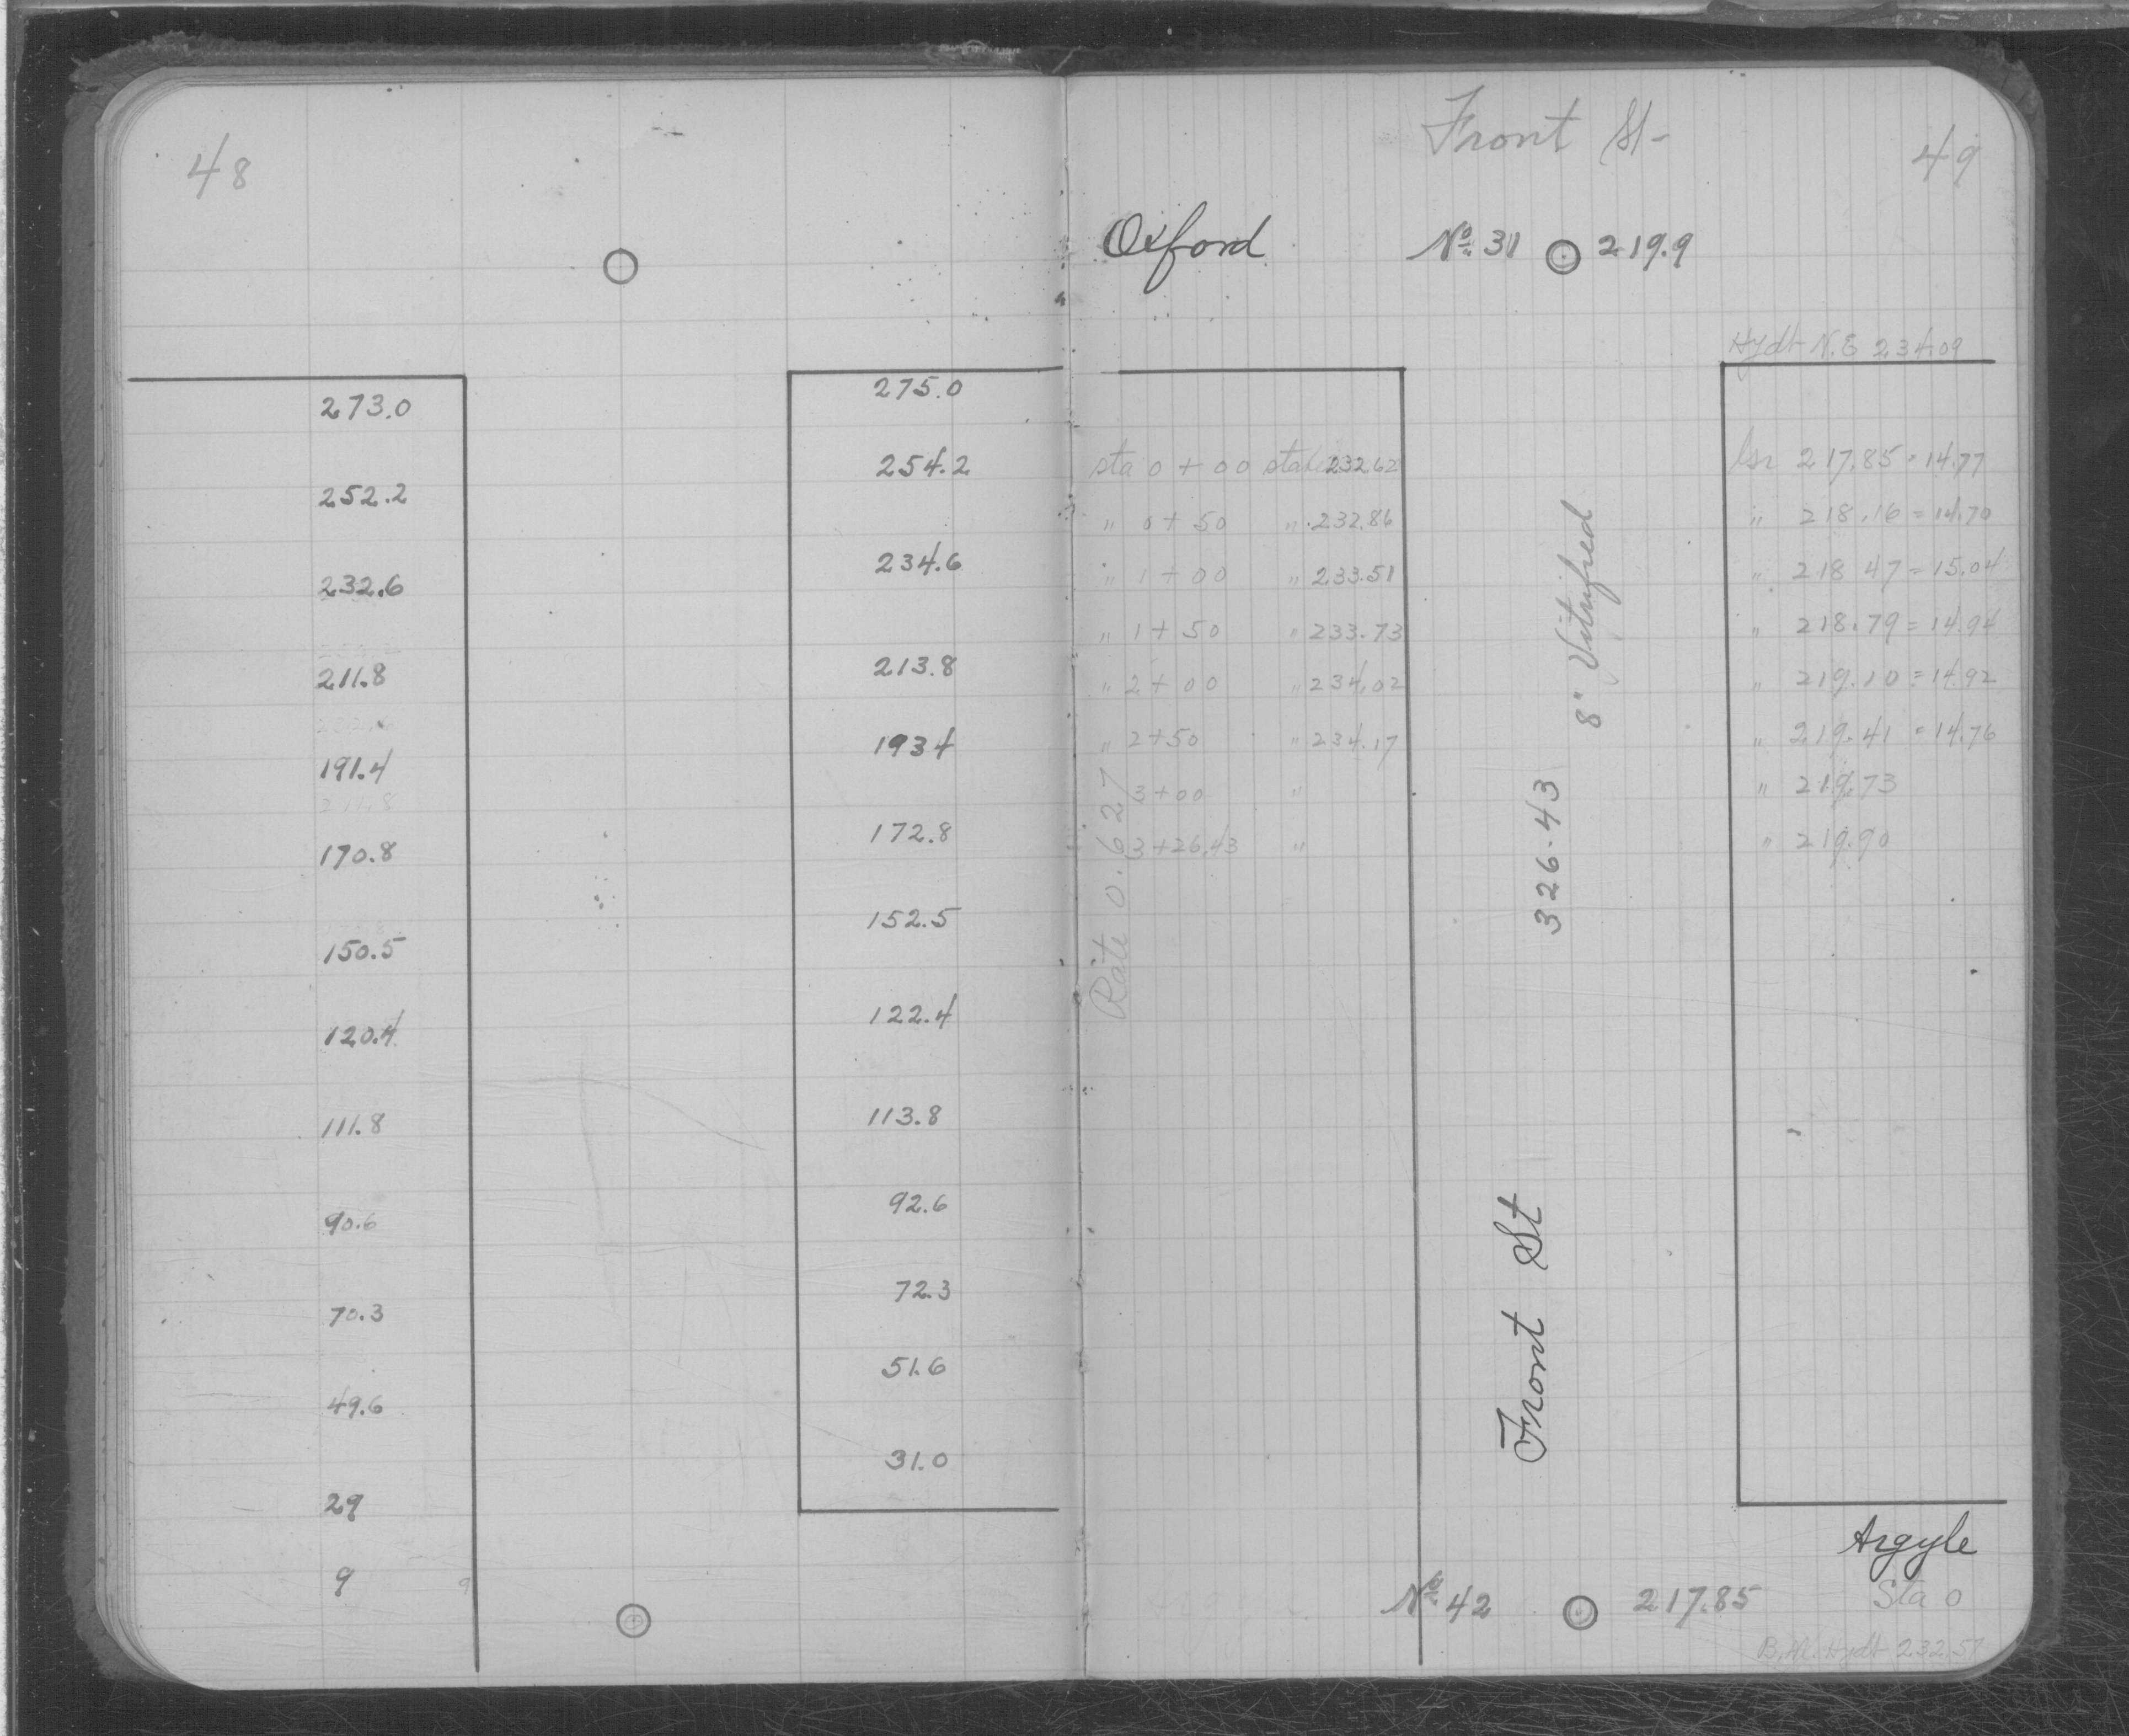 48
273.0
252.2
232.6
211.8
191.4
170.8
150.5
120.4
111.8
90.6
70.3
49.6
29
9
9
275.0
254.2
234.6
213.8
193 4
172.8
152.5
122.4
113.8
92.6
72.3
51.6
31.0
Front St-
49
Oxford
No 31 219.9
Hydt N.E 234.09
sta 0 + 00 stake 232.62 217.85 = 14.77
" 0 + 50 " 232.86 " 218.16 = 14.70
" 1 + 00 " 233.51 " 218 47 = 15.04
" 1 + 50 " 233.73 " 218.79 = 14.94
" 2 + 00 " 234.02 " 219.10 = 14.92
" 2+50 " 234.17 " 219.41 = 14.76
3+00 " " 219.73
3+26.43 " " 219.90
Rate 0.627
8" Vitrified
326.43
Front St
Argyle
No 42 217.85
Sta 0
B.M. Hydt 232.57